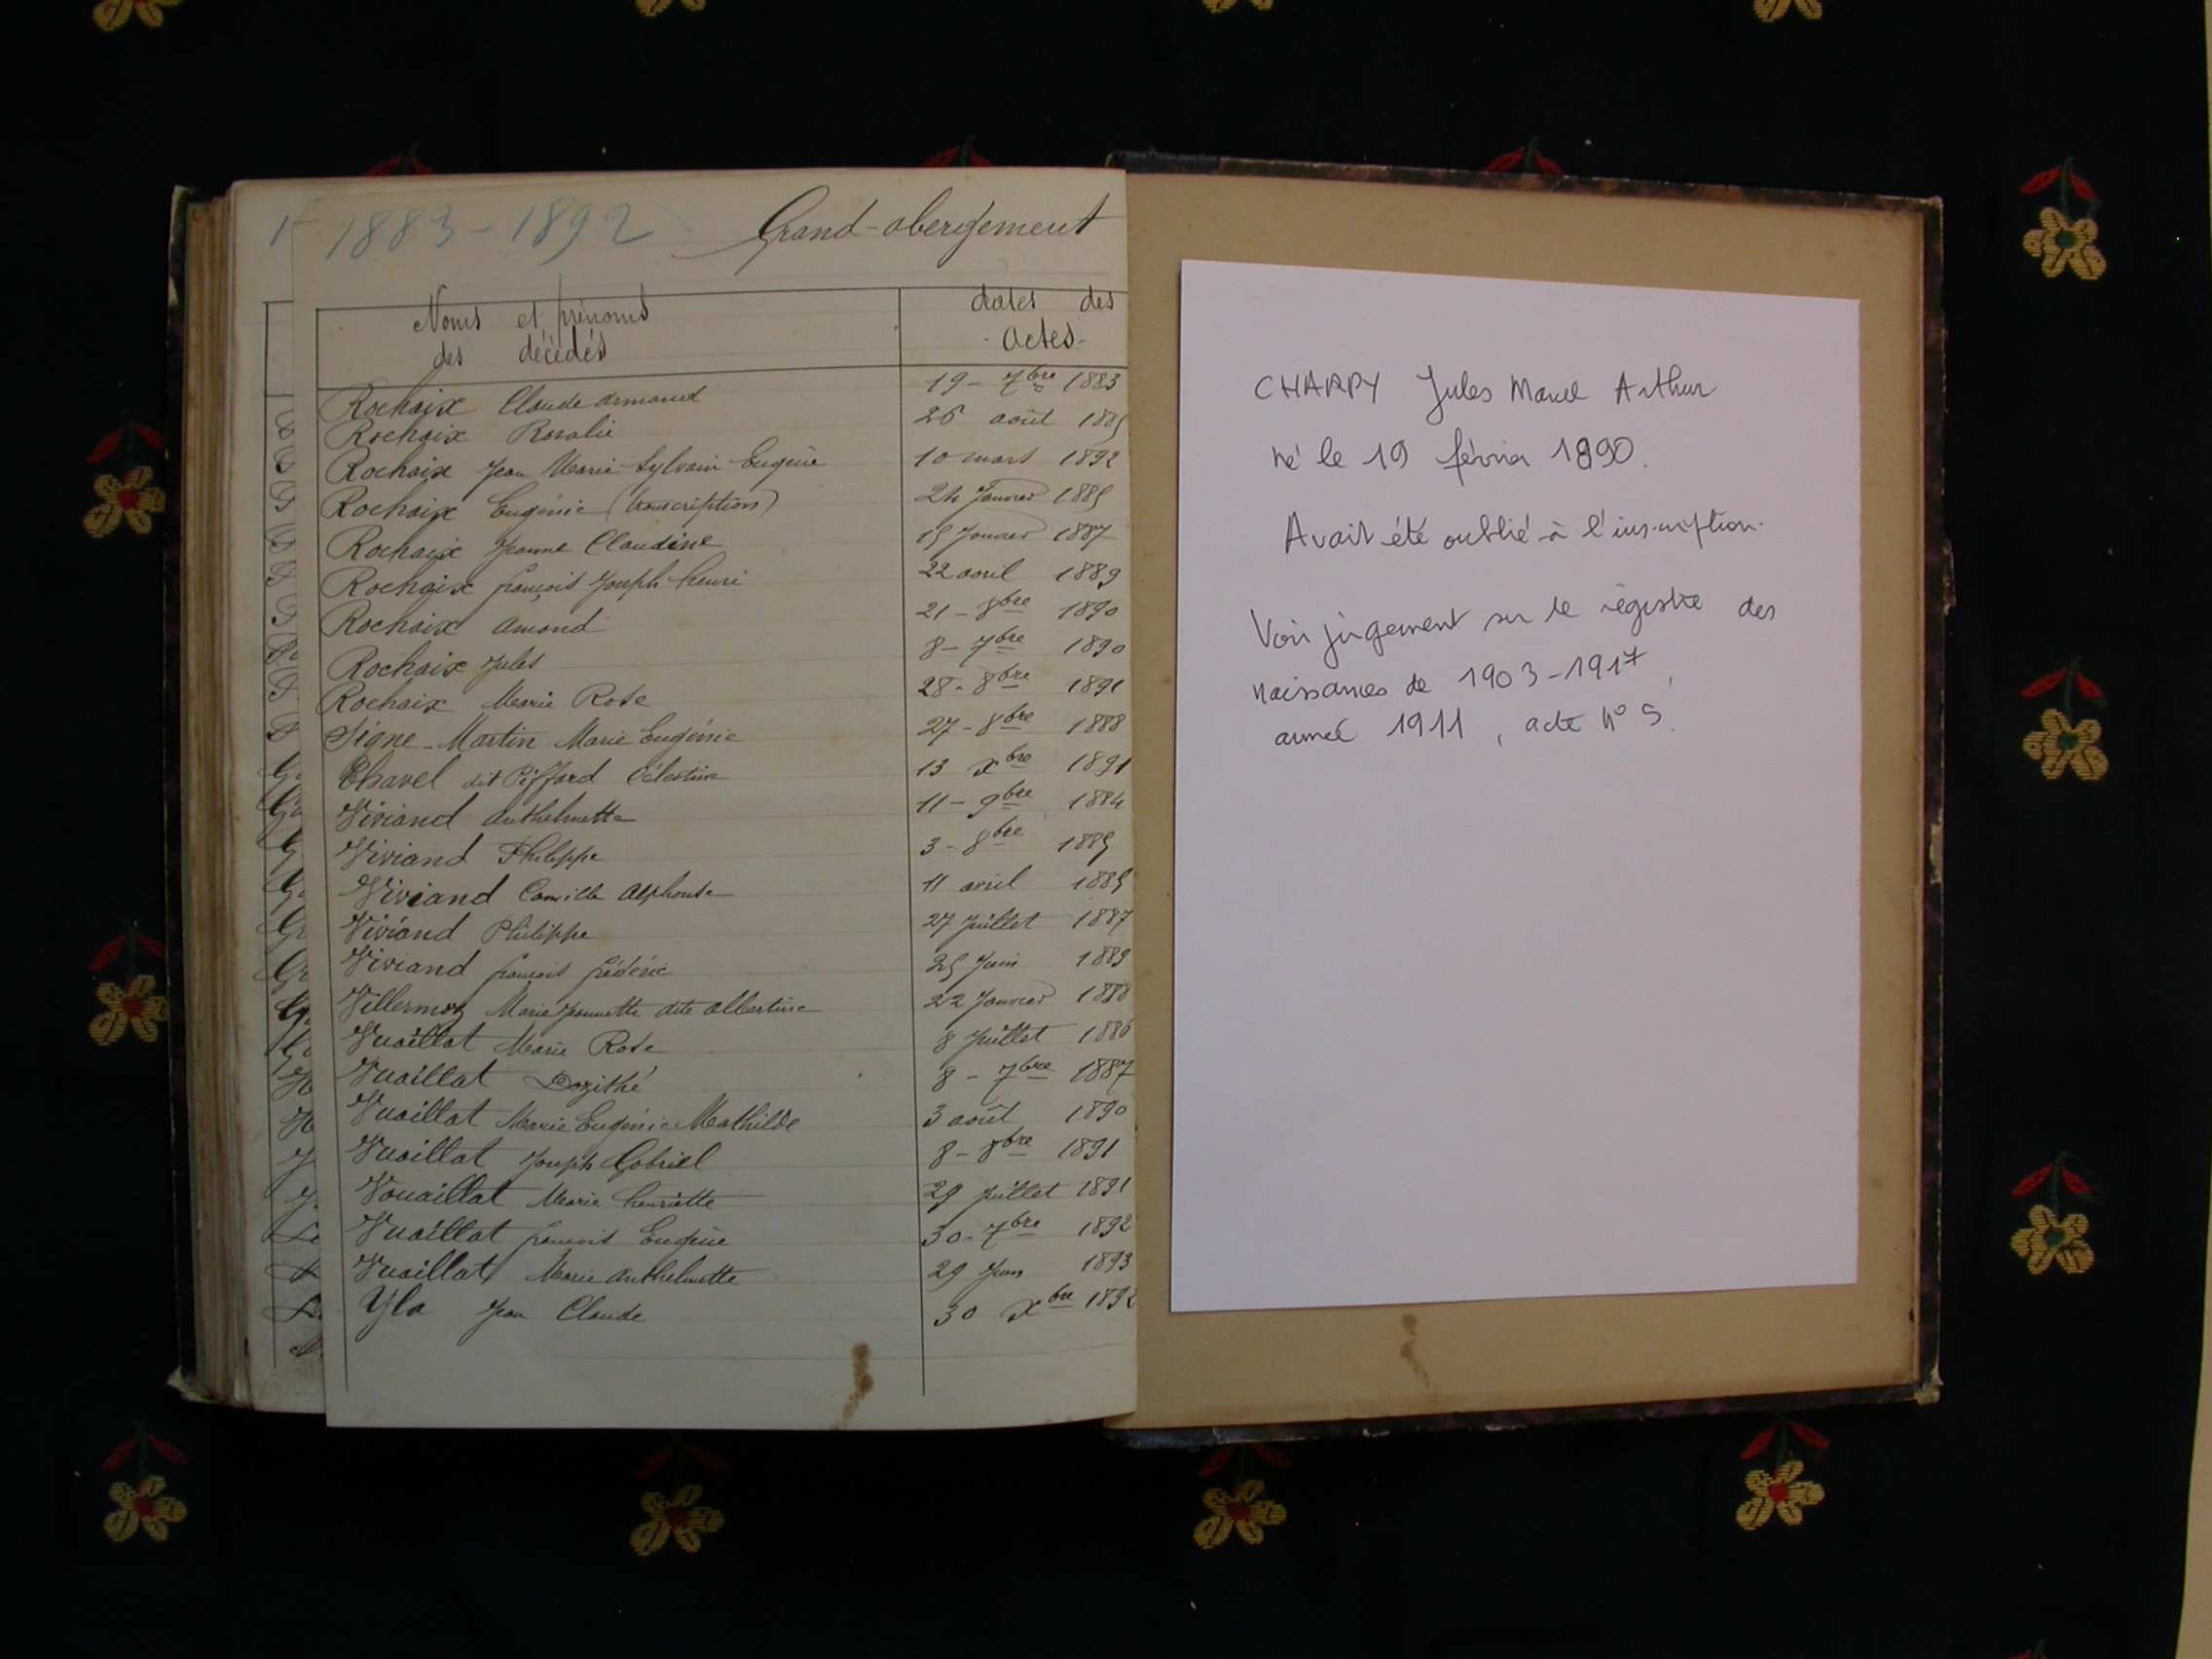 1883-1892 Grand-abergement
Noms et prénoms
des décédés
dates des
actes
Rochaix Claude armand 19 - 7bre 1883
Rochaix Rosalie 26 août 1885
Rochaix Jean Marie Sylvain Eugène 10 mars 1892
Rochaix Eugénie (transcription) 24 Janvier 1885
Rochaix Jeanne Claudine 15 Janvier 1887
Rochaix françois Joseph henri 22 avril 1889
Rochaix amand 21 - 8bre 1890
Rochaix Jules 8 - 7bre 1890
Rochaix Marie Rose 28 - 8bre 1891
Signe-Martin Marie Eugénie 27 - 8bre 1888
Chavel dit Piffard Célestine 13 xbre 1891
Viviand anthelmette 11 - 9bre 1884
Viviand Philippe 3 - 8bre 1885
Viviand Camille alphonse 11 avril 1885
Viviand Philippe 27 Juillet 1887
Viviand françois frédéric 25 Juin 1889
Villermoz Marie Jeannette dite albertine 22 Janvier 1888
Vuaillat Marie Rose 8 Juillet 1886
Vuaillat Dozithé 8 - 7bre 1887
Vuaillat Marie Eugénie Mathilde 3 août 1890
Vuaillat Joseph Gabriel 8 - 8bre 1891
Vouaillat Marie henriette 29 Juillet 1891
Vuaillat françois Eugène 30 - 7bre 1892
Vuaillat Marie anthelmette 29 Juin 1893
Yla Jean Claude 30 xbre 1892
CHARPY Jules Marcel Arthur
né le 19 février 1890.
Avait été oublié à l'inscription.
Voir jugement sur le registre des
naissances de 1903-1917,
année 1911, acte N° 5.